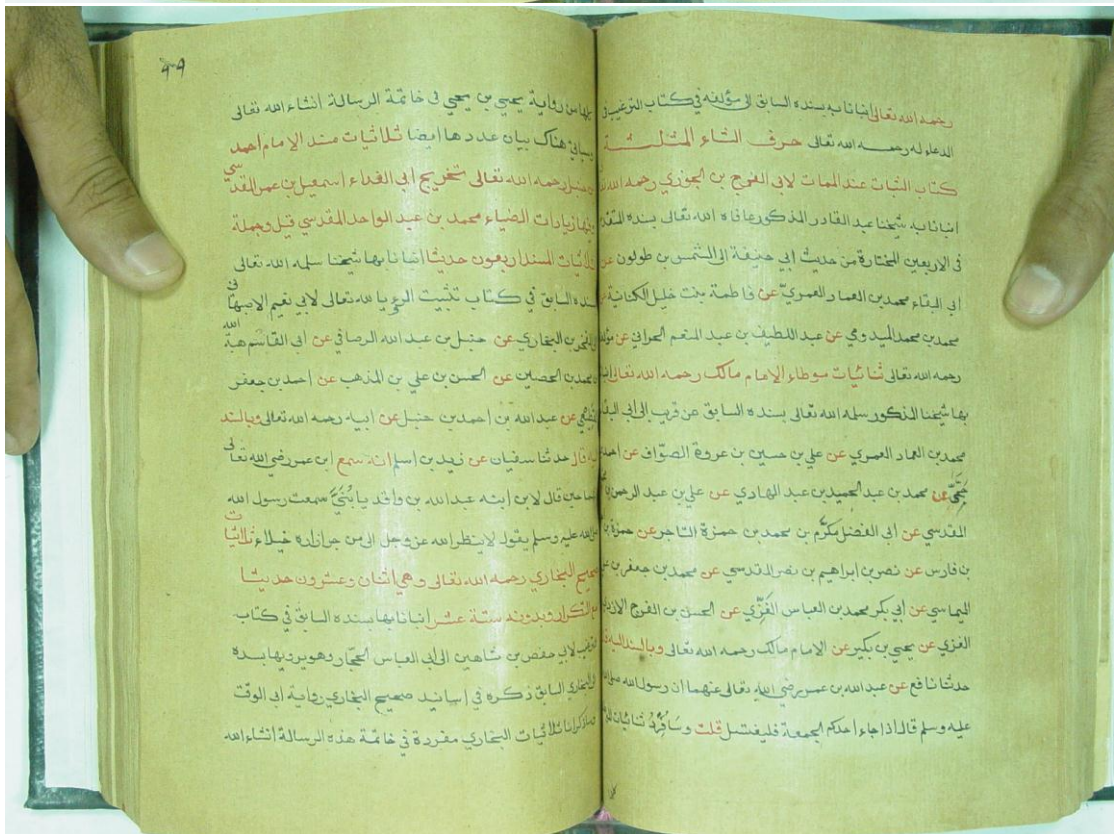 رحمه الله تعالى انبانا به بسنده السابق الى مؤلفه في كتاب الترغيب في
الدعاء له رحمه الله تعالى حرف الثاء المثلثة
كتاب الثبات عند الممات لابي الفرج بن الجوزي رحمه الله
انبانا به شيخنا عبد القادر المذكور عافاه الله تعالى بسنده
في الاربعين المختارة من حديث ابي حنيفة الى الشمس بن طولون عن
ابي البقاء محمد بن العماد العمري عن فاطمة بنت خليل الكنانية
محمد بن محمد الميدومي عن عبد اللطيف بن عبد المنعم الحراني عن
رحمه الله تعالى ثنائيات موطاء الامام مالك رحمه الله تعالى
بها شيخنا المذكور سلمه الله تعالى بسنده السابق عن قريب الى ابي
محمد بن العماد العمري عن علي بن حسين بن عروة الصوّاف عن
عن محمد بن عبد الحميد بن عبد الهادي عن علي بن عبد الرحمن
المقدسي عن ابي الفضل مكرّم بن محمد بن حمزة التاجر عن حمزة
بن فارس عن نصر بن ابراهيم بن نصر المقدسي عن محمد بن جعفر بن
الميماسي عن ابي بكر محمد بن العباس الغزّي عن الحسن بن الفرج
الغزي عن يحيى بن بكير عن الامام مالك رحمه الله تعالى وبالسند اليه
حدثنا نافع عن عبد الله بن عمر رضي الله تعالى عنهما ان رسول الله
عليه وسلم قال اذا جاء احدكم الجمعة فليغتسل قلت وسأفرد ثنائيات
من رواية يحيى بن يحيى في خاتمة الرسالة انشاء الله تعالى
وسياتي هناك بيان عددها ايضا ثلاثيات مسند الامام احمد
بن حنبل رحمه الله تعالى تخريج ابي الفداء اسمعيل بن عمر المقدسي
زيادات الضياء محمد بن عبد الواحد المقدسي قيل وجملة
ثلاثيات المسند اربعون حديثا انبانا بها شيخنا سلمه الله تعالى
بسنده السابق في كتاب تثبيت الرؤيا لله تعالى لابي نعيم الاصبهاني
بن البخاري عن حنبل بن عبد الله الرصافي عن ابي القاسم هبة الله
بن محمد بن الحصين عن الحسن بن علي بن المذهب عن احمد بن جعفر
عن عبد الله بن احمد بن حنبل عن ابيه رحمه الله تعالى وبالسند
قال حدثنا سفيان عن زيد بن اسلم انه سمع ابن عمر رضي الله تعالى
حين قال لابن ابنه عبد الله بن واقد يا بُنَيَّ سمعت رسول الله
صلى الله عليه وسلم يقول لا ينظر الله عز وجل الى من جر ازاره خيلاء ثلاثيات
صحيح البخاري رحمه الله تعالى وهي اثنان وعشرون حديثا
مع التكرار وبدونه ستة عشر انبانا بها بسنده السابق في كتاب
الترغيب لابي حفص بن شاهين الى ابي العباس الحجّار وهو يرويها بسنده
البخاري السابق ذكره في اسانيد صحيح البخاري رواية ابي الوقت
ثلاثيات البخاري مفردة في خاتمة هذه الرسالة انشاء الله